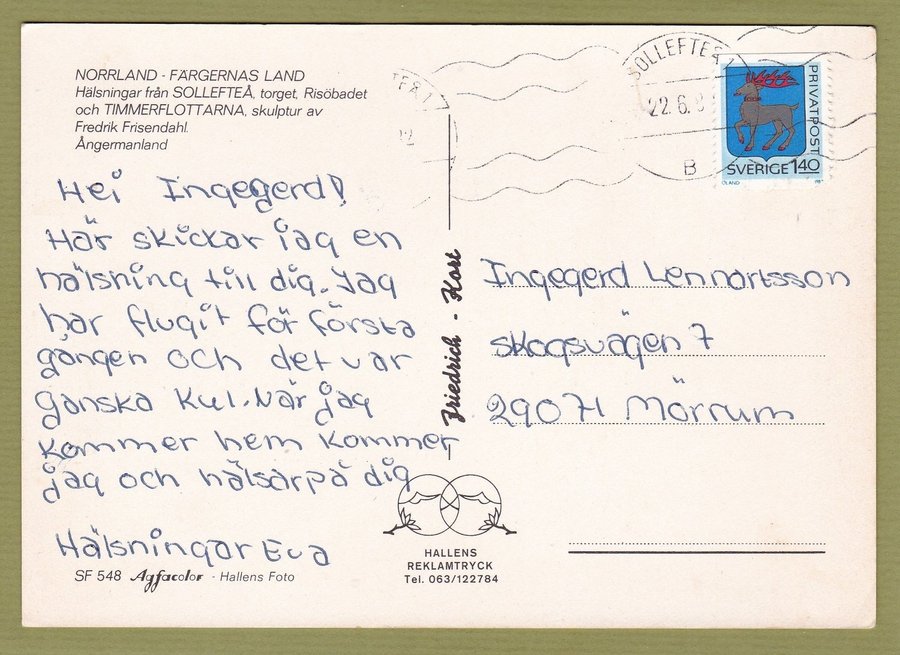 NORRLAND - FÄRGERNAS LAND
Hälsningar från SOLLEFTEÅ, torget, Risöbadet
och TIMMERFLOTTARNA, skulptur av
Fredrik Frisendahl.
Ångermanland
Hei Ingegerd!
Här skickar jag en
hälsning till dig. Jag
har flugit för första
gången och det var
ganska kul. När jag
kommer hem kommer
jag och hälsar på dig
Hälsningar Eva
SF 548 Agfacolor - Hallens Foto
Friedrich - Kort
HALLENS
REKLAMTRYCK
Tel. 063/122784
SOLLEFTEÅ 1
22.6.8
B
PRIVATPOST
SVERIGE 1.40
ÖLAND
Ingegerd Lennartsson
skogsvägen 7
29071 Mörrum